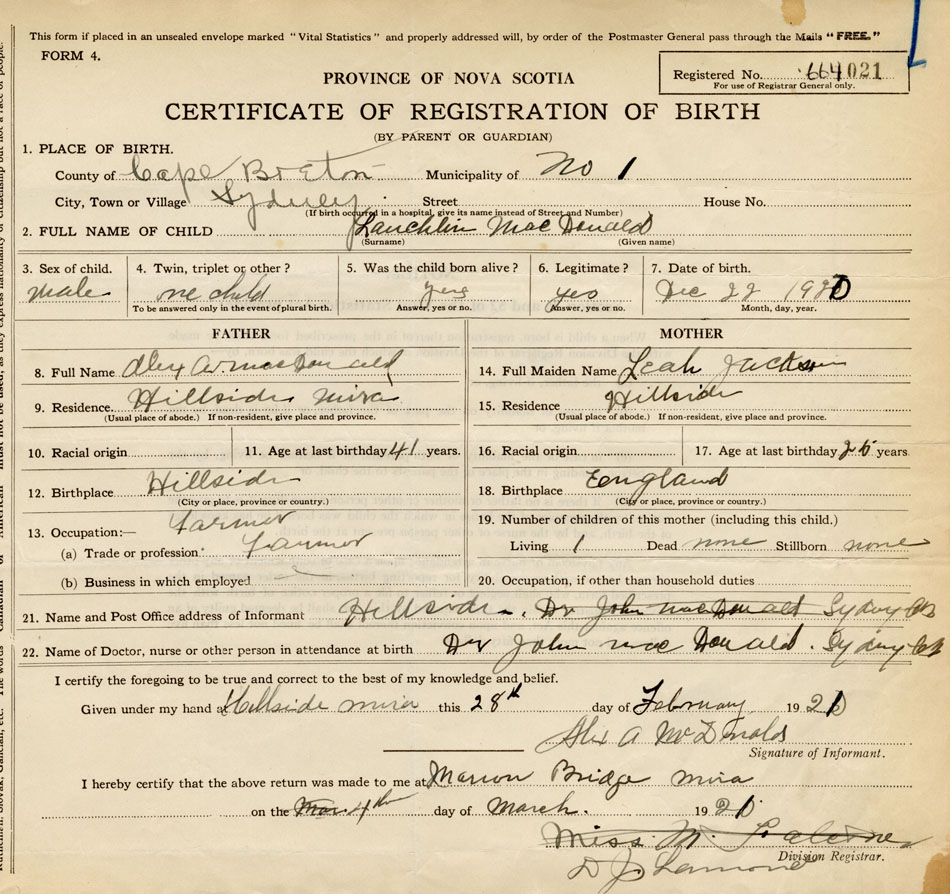 This form if placed in an unsealed envelope marked "Vital Statistics" and properly addressed will, by order of the Postmaster General pass through the Mails "FREE."
FORM 4.
Registered No. 664021
For use of Registrar General only.
PROVINCE OF NOVA SCOTIA
CERTIFICATE OF REGISTRATION OF BIRTH
(BY PARENT OR GUARDIAN)
1. PLACE OF BIRTH.
County of Cape Breton Municipality of No 1
City, Town or Village Sydney Street House No.
(If birth occurred in a hospital, give its name instead of Street and Number)
2. FULL NAME OF CHILD Lauchlin MacDonald
(Surname) (Given name)
3. Sex of child. 4. Twin, triplet or other? 5. Was the child born alive? 6. Legitimate? 7. Date of birth.
male one child yes yes Dec 22 1920
To be answered only in the event of plural birth. Answer, yes or no. Answer, yes or no. Month, day, year.
FATHER MOTHER
8. Full Name Alex A. MacDonald 14. Full Maiden Name Leah Jackson
9. Residence Hillside Mira 15. Residence Hillside
(Usual place of abode.) If non-resident, give place and province. (Usual place of abode.) If non-resident, give place and province.
10. Racial origin 11. Age at last birthday 41 years. 16. Racial origin 17. Age at last birthday 26 years
12. Birthplace Hillside 18. Birthplace England
(City or place, province or country.) (City or place, province or country.)
13. Occupation:— Farmer 19. Number of children of this mother (including this child.)
(a) Trade or profession Farmer Living 1 Dead none Stillborn none
(b) Business in which employed 20. Occupation, if other than household duties
21. Name and Post Office address of Informant Hillside Dr John MacDonald Sydney CB
22. Name of Doctor, nurse or other person in attendance at birth Dr John MacDonald. Sydney CB
I certify the foregoing to be true and correct to the best of my knowledge and belief.
Given under my hand at Hillside mira this 28th day of February 192
Alex A McDonald
Signature of Informant.
I hereby certify that the above return was made to me at Marion Bridge mira
on the Mar 4th day of March. 192
Miss M.
D J Lamond
Division Registrar.